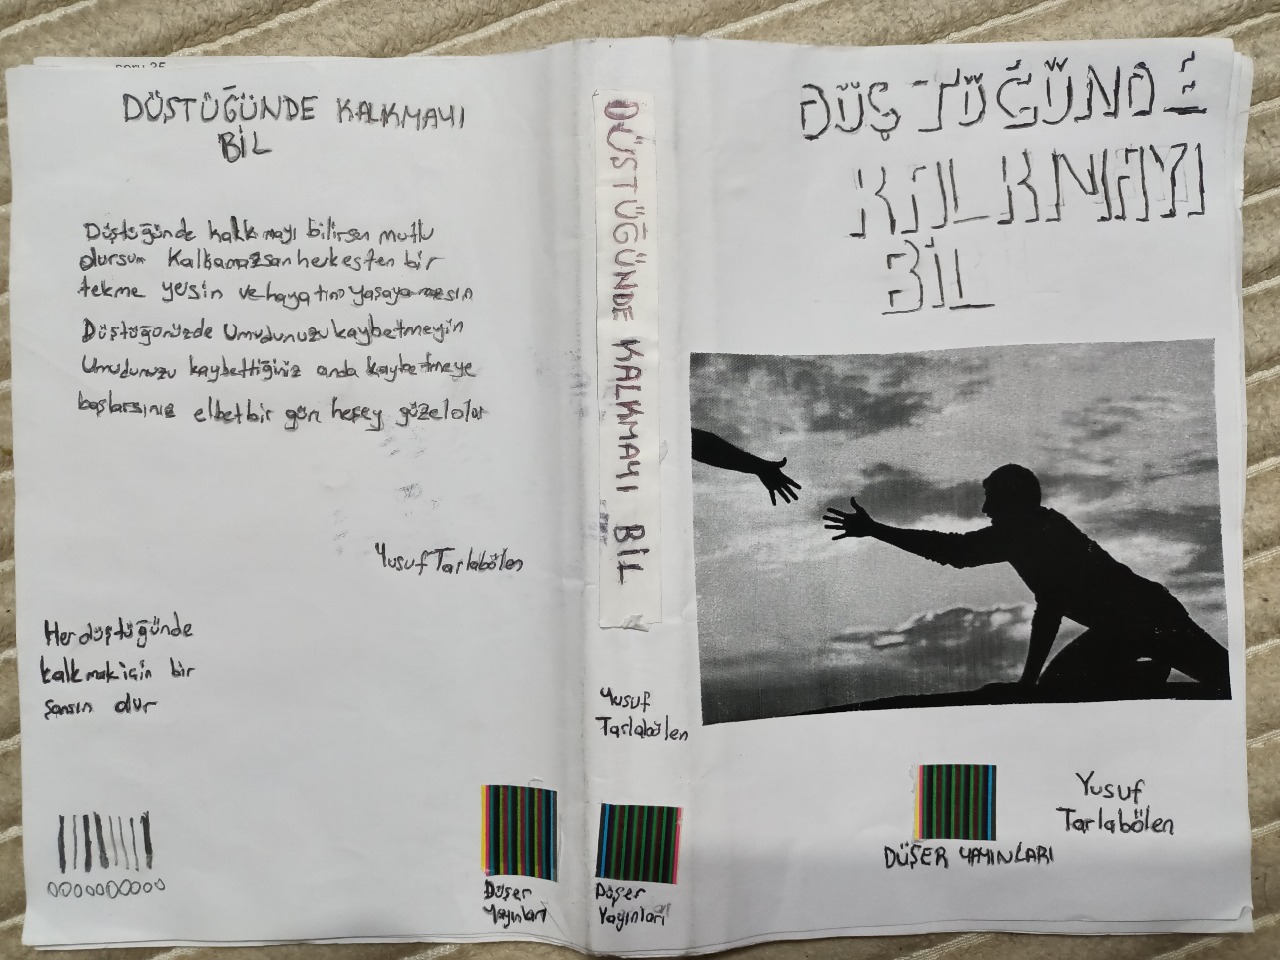 soru 25
DÜŞTÜĞÜNDE KALKMAYI
BİL
Düştüğünde kalkmayı bilirsen mutlu
olursun Kalkamazsan herkesten bir
tekme yersin ve hayatını yaşayamazsın
Düştüğünüzde Umudunuzu kaybetmeyin
Umudunuzu kaybettiğiniz anda kaybetmeye
başlarsınız elbet bir gün herşey güzel olur
Yusuf Tarlabölen
Her düştüğünde
kalkmak için bir
şansın olur
0000000000
Düşer
Yayınları
DÜŞTÜĞÜNDE KALKMAYI BİL
Yusuf
Tarlabölen
Düşer
Yayınları
DÜŞTÜĞÜNDE
KALKMAYI
BİL
Yusuf
Tarlabölen
DÜŞER YAYINLARI